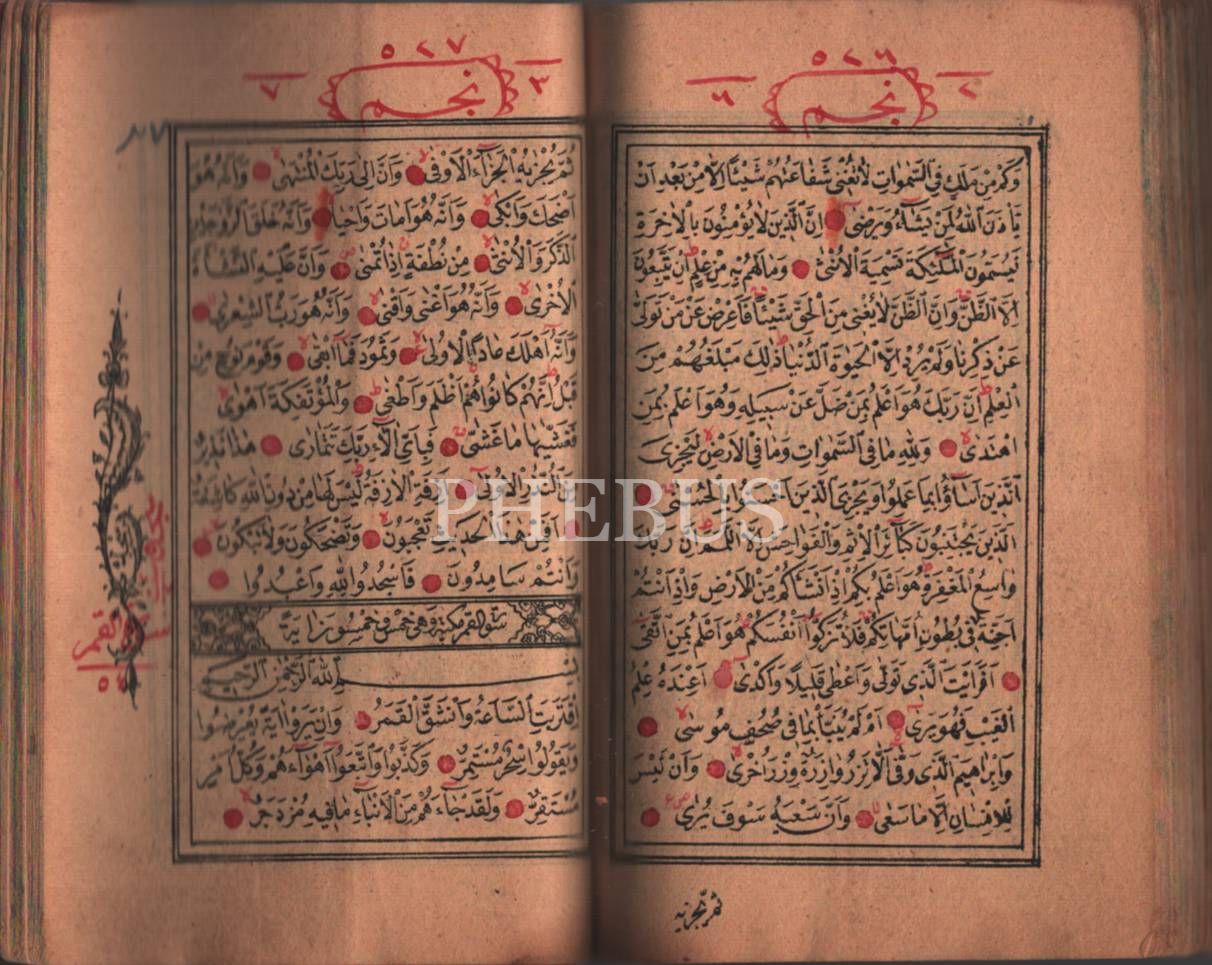 ٥٢٦
٢
نجم
٦
وَكَمْ مِنْ مَلَكٍ فِي السَّمٰوَاتِ لَا تُغْنِي شَفَاعَتُهُمْ شَيْئًا اِلَّا مِنْ بَعْدِ اَنْ
يَأْذَنَ اللّٰهُ لِمَنْ يَشَاءُ وَيَرْضٰى اِنَّ الَّذِينَ لَا يُؤْمِنُونَ بِالْاٰخِرَةِ
لَيُسَمُّونَ الْمَلٰئِكَةَ تَسْمِيَةَ الْاُنْثٰى وَمَا لَهُمْ بِهِ مِنْ عِلْمٍ اِنْ يَتَّبِعُونَ
اِلَّا الظَّنَّ وَاِنَّ الظَّنَّ لَا يُغْنِي مِنَ الْحَقِّ شَيْئًا فَاَعْرِضْ عَنْ مَنْ تَوَلّٰى
عَنْ ذِكْرِنَا وَلَمْ يُرِدْ اِلَّا الْحَيٰوةَ الدُّنْيَا ذٰلِكَ مَبْلَغُهُمْ مِنَ
الْعِلْمِ اِنَّ رَبَّكَ هُوَ اَعْلَمُ بِمَنْ ضَلَّ عَنْ سَبِيلِهِ وَهُوَ اَعْلَمُ بِمَنِ
اهْتَدٰى وَلِلّٰهِ مَا فِي السَّمٰوَاتِ وَمَا فِي الْاَرْضِ لِيَجْزِيَ
الَّذِينَ اَسَاؤُا بِمَا عَمِلُوا وَيَجْزِيَ الَّذِينَ اَحْسَنُوا بِالْحُسْنٰى
اَلَّذِينَ يَجْتَنِبُونَ كَبَائِرَ الْاِثْمِ وَالْفَوَاحِشَ اِلَّا اللَّمَمَ اِنَّ رَبَّكَ
وَاسِعُ الْمَغْفِرَةِ هُوَ اَعْلَمُ بِكُمْ اِذْ اَنْشَاَكُمْ مِنَ الْاَرْضِ وَاِذْ اَنْتُمْ
اَجِنَّةٌ فِي بُطُونِ اُمَّهَاتِكُمْ فَلَا تُزَكُّوا اَنْفُسَكُمْ هُوَ اَعْلَمُ بِمَنِ اتَّقٰى
اَفَرَاَيْتَ الَّذِي تَوَلّٰى وَاَعْطٰى قَلِيلًا وَاَكْدٰى اَعِنْدَهُ عِلْمُ
الْغَيْبِ فَهُوَ يَرٰى اَمْ لَمْ يُنَبَّأْ بِمَا فِي صُحُفِ مُوسٰى
وَاِبْرٰهِيمَ الَّذِي وَفّٰى اَلَّا تَزِرُ وَازِرَةٌ وِزْرَ اُخْرٰى وَاَنْ لَيْسَ
لِلْاِنْسَانِ اِلَّا مَا سَعٰى وَاَنَّ سَعْيَهُ سَوْفَ يُرٰى
ثُمَّ يُجْزٰيهُ
٥٢٧
٣
نجم
٧
٢٧
ثُمَّ يُجْزٰيهُ الْجَزَاءَ الْاَوْفٰى وَاَنَّ اِلٰى رَبِّكَ الْمُنْتَهٰى وَاَنَّهُ هُوَ
اَضْحَكَ وَاَبْكٰى وَاَنَّهُ هُوَ اَمَاتَ وَاَحْيَا وَاَنَّهُ خَلَقَ الزَّوْجَيْنِ
الذَّكَرَ وَالْاُنْثٰى مِنْ نُطْفَةٍ اِذَا تُمْنٰى وَاَنَّ عَلَيْهِ النَّشْاَةَ
الْاُخْرٰى وَاَنَّهُ هُوَ اَغْنٰى وَاَقْنٰى وَاَنَّهُ هُوَ رَبُّ الشِّعْرٰى
وَاَنَّهُ اَهْلَكَ عَادًا الْاُولٰى وَثَمُودَ فَمَا اَبْقٰى وَقَوْمَ نُوحٍ مِنْ
قَبْلُ اِنَّهُمْ كَانُوا هُمْ اَظْلَمَ وَاَطْغٰى وَالْمُؤْتَفِكَةَ اَهْوٰى
فَغَشّٰيهَا مَا غَشّٰى فَبِاَيِّ اٰلَاءِ رَبِّكَ تَتَمَارٰى هٰذَا نَذِيرٌ
مِنَ النُّذُرِ الْاُولٰى اَزِفَتِ الْاٰزِفَةُ لَيْسَ لَهَا مِنْ دُونِ اللّٰهِ كَاشِفَةٌ
اَفَمِنْ هٰذَا الْحَدِيثِ تَعْجَبُونَ وَتَضْحَكُونَ وَلَا تَبْكُونَ
وَاَنْتُمْ سَامِدُونَ فَاسْجُدُوا لِلّٰهِ وَاعْبُدُوا
سورة القمر مكية وهى خمس وخمسون اية
بسم الله الرحمن الرحيم
اِقْتَرَبَتِ السَّاعَةُ وَانْشَقَّ الْقَمَرُ وَاِنْ يَرَوْا اٰيَةً يُعْرِضُوا
وَيَقُولُوا سِحْرٌ مُسْتَمِرٌّ وَكَذَّبُوا وَاتَّبَعُوا اَهْوَاءَهُمْ وَكُلُّ اَمْرٍ
مُسْتَقِرٌّ وَلَقَدْ جَاءَهُمْ مِنَ الْاَنْبَاءِ مَا فِيهِ مُزْدَجَرٌ
قمر
PHEBUS